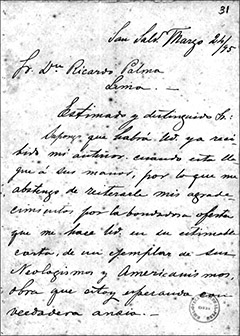 31
San Salv. Marzo 24/95
Sr. Dn. Ricardo Palma
Lima. —
Estimado y distinguido Sr:
Supongo que habrá Ud. ya reci-
bido mi anterior, cuando esta lle-
gue á sus manos, por lo que me
abstengo de reiterarle mis agrade-
cimientos por la bondadosa oferta
que me hace Ud. en su estimable
carta, de un ejemplar de sus
Neologismos y Americanismos,
obra que estoy esperando con
verdadera ansia. —